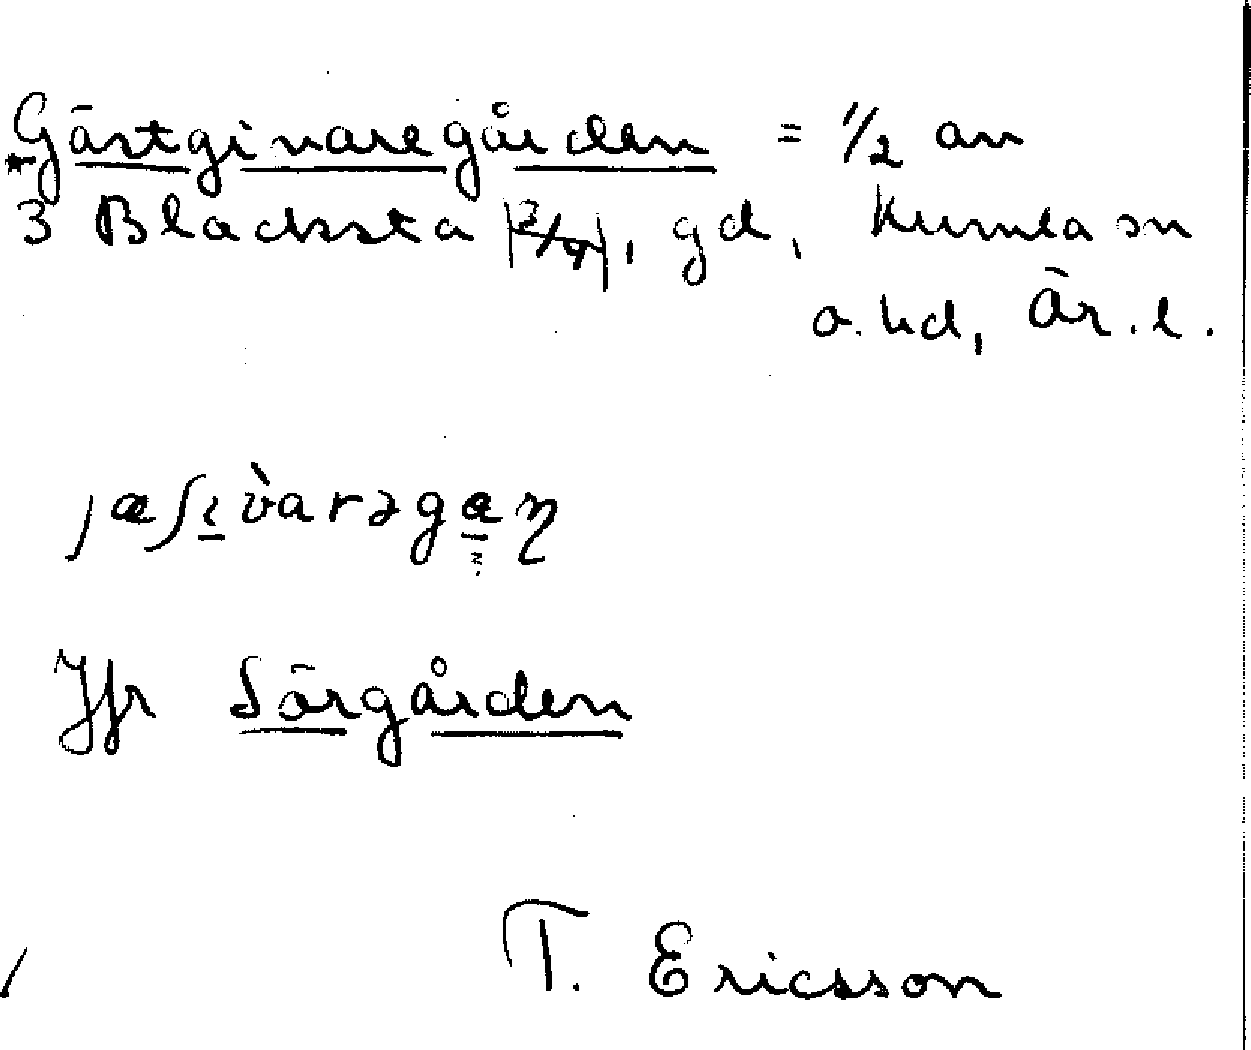 *Gästgivaregården = 1/2 av
3 Blacksta |2/9|, gd, Kumla sn
o. hd, Ör. l.
jæʃɩ̀varəgaɳ
Jfr Sörgården
T. Ericsson